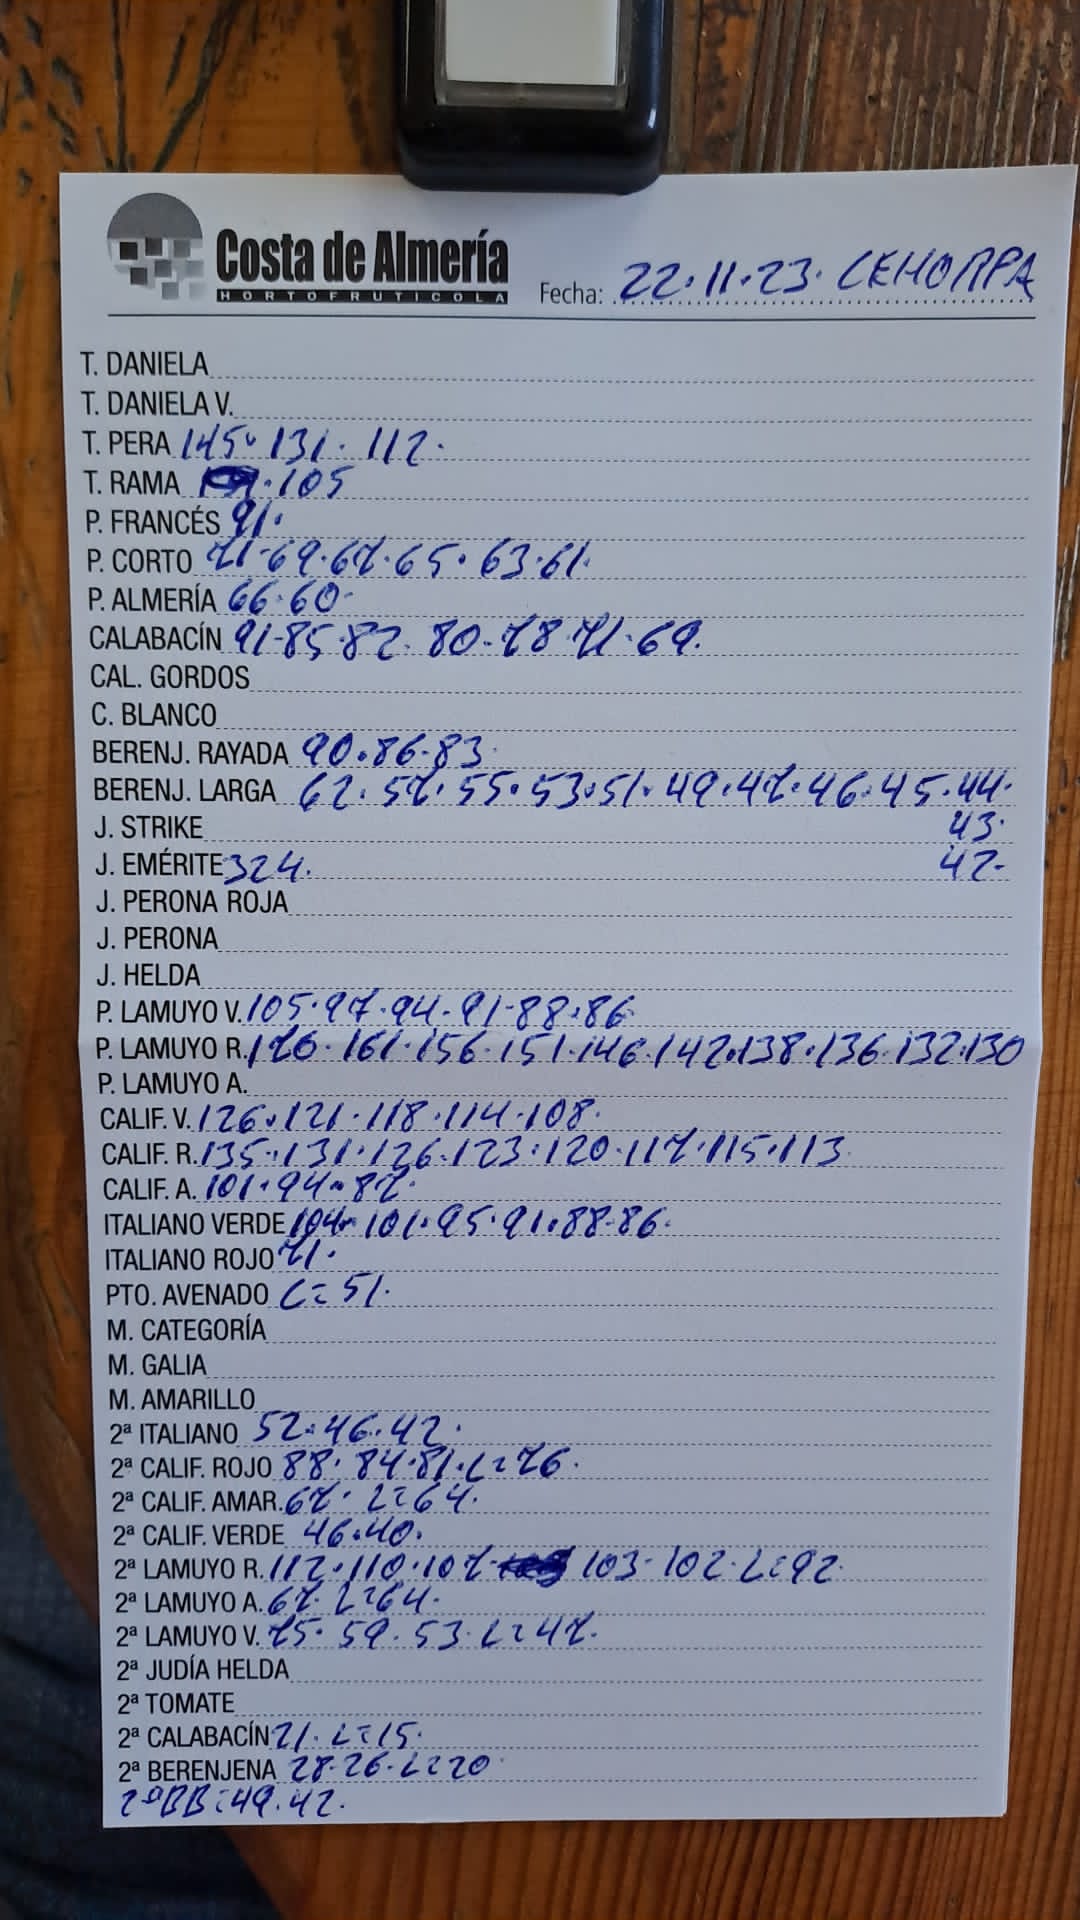 Costa de Almería
HORTOFRUTICOLA
Fecha: 22.11.23. CEHORPA
T. DANIELA
T. DANIELA V.
T. PERA 145. 131. 112.
T. RAMA .105
P. FRANCÉS 91.
P. CORTO 71-69.67.65. 63.61.
P. ALMERÍA 66.60-
CALABACÍN 91-85.82. 80-78.71.69.
CAL. GORDOS
C. BLANCO
BERENJ. RAYADA 90.86-83.
BERENJ. LARGA 62.57.55.53.51.49.47.46.45.44.
J. STRIKE 43.
J. EMÉRITE 324. 42-
J. PERONA ROJA
J. PERONA
J. HELDA
P. LAMUYO V. 105.97.94.91-88.86
P. LAMUYO R. 176.161.156.151.146.142.138.136.132.130
P. LAMUYO A.
CALIF. V. 126.121.118.114.108.
CALIF. R. 135.131.126.123.120.117.115.113
CALIF. A. 101.94.87.
ITALIANO VERDE 104. 101.95.91.88-86.
ITALIANO ROJO 71.
PTO. AVENADO L=51.
M. CATEGORÍA
M. GALIA
M. AMARILLO
2ª ITALIANO 52.46.42.
2ª CALIF. ROJO 88.84.81.L=76.
2ª CALIF. AMAR. 67. L=64.
2ª CALIF. VERDE 46.40.
2ª LAMUYO R. 112.110.107- 103-102.L=92.
2ª LAMUYO A. 67. L=64.
2ª LAMUYO V. 75.59.53.L=47.
2ª JUDÍA HELDA
2ª TOMATE
2ª CALABACÍN 21. L=15.
2ª BERENJENA 28.26.L=20
2ªBB=49.42.